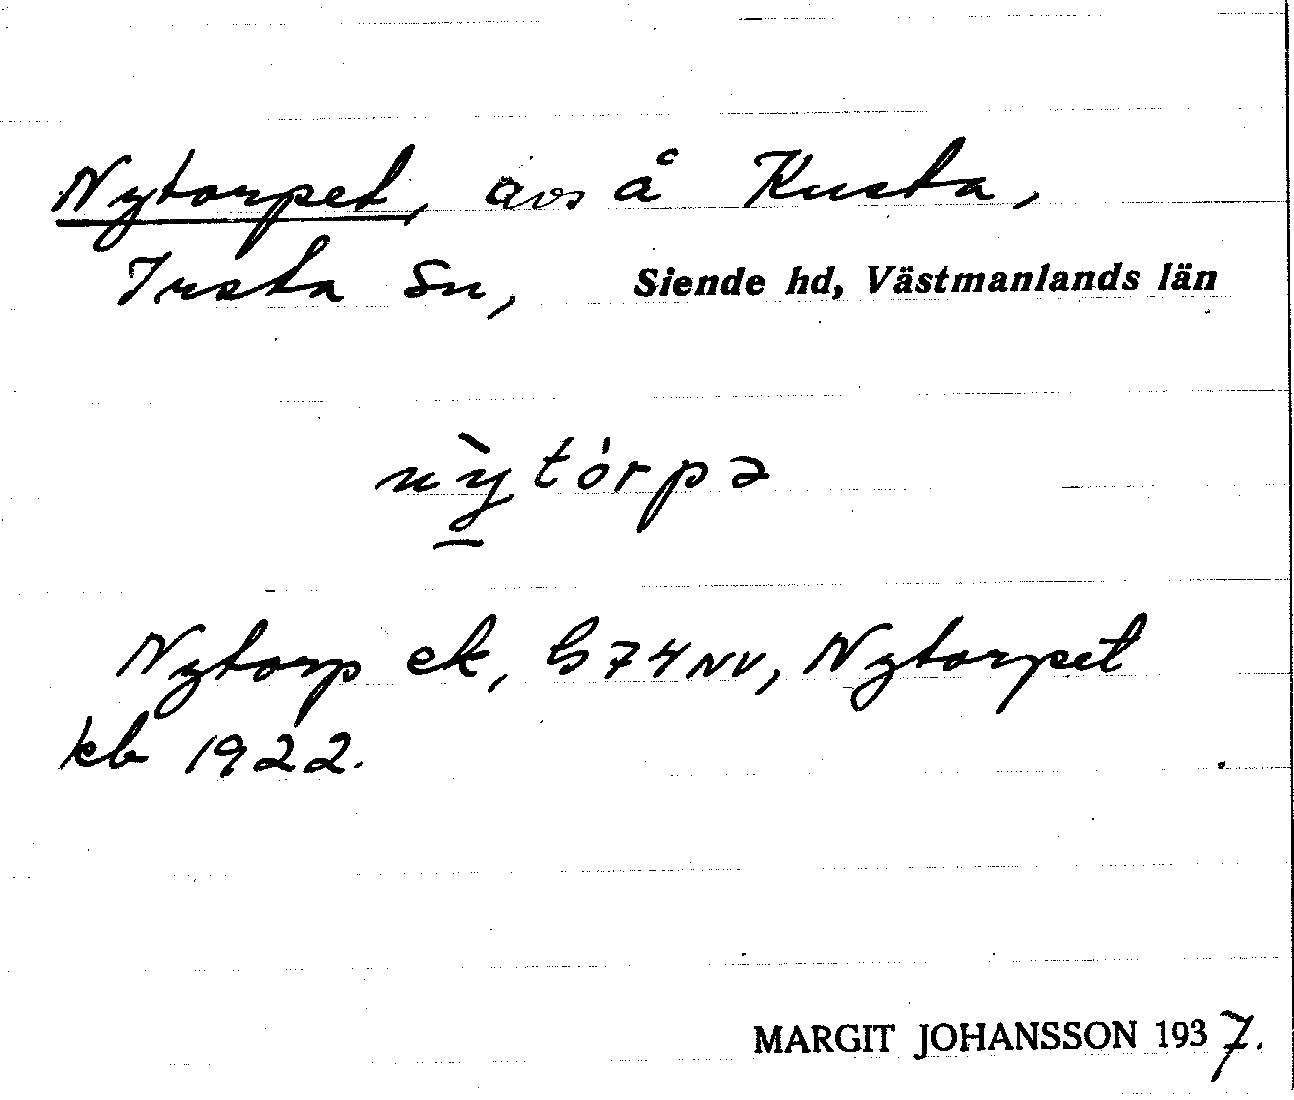 Nytorpet, avs å Kusta,
Irsta Sn, Siende hd, Västmanlands län
nỳtórpə
Nytorp ek, G 74 NV, Nytorpet
kb 1922.
MARGIT JOHANSSON 1937.